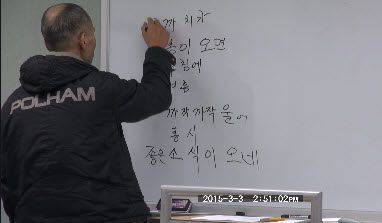 까치가
이 오면
침에
까작까작 울어
홍시
좋은 소식이 오네
POLHAM
2015-3-3 2:51:02PM